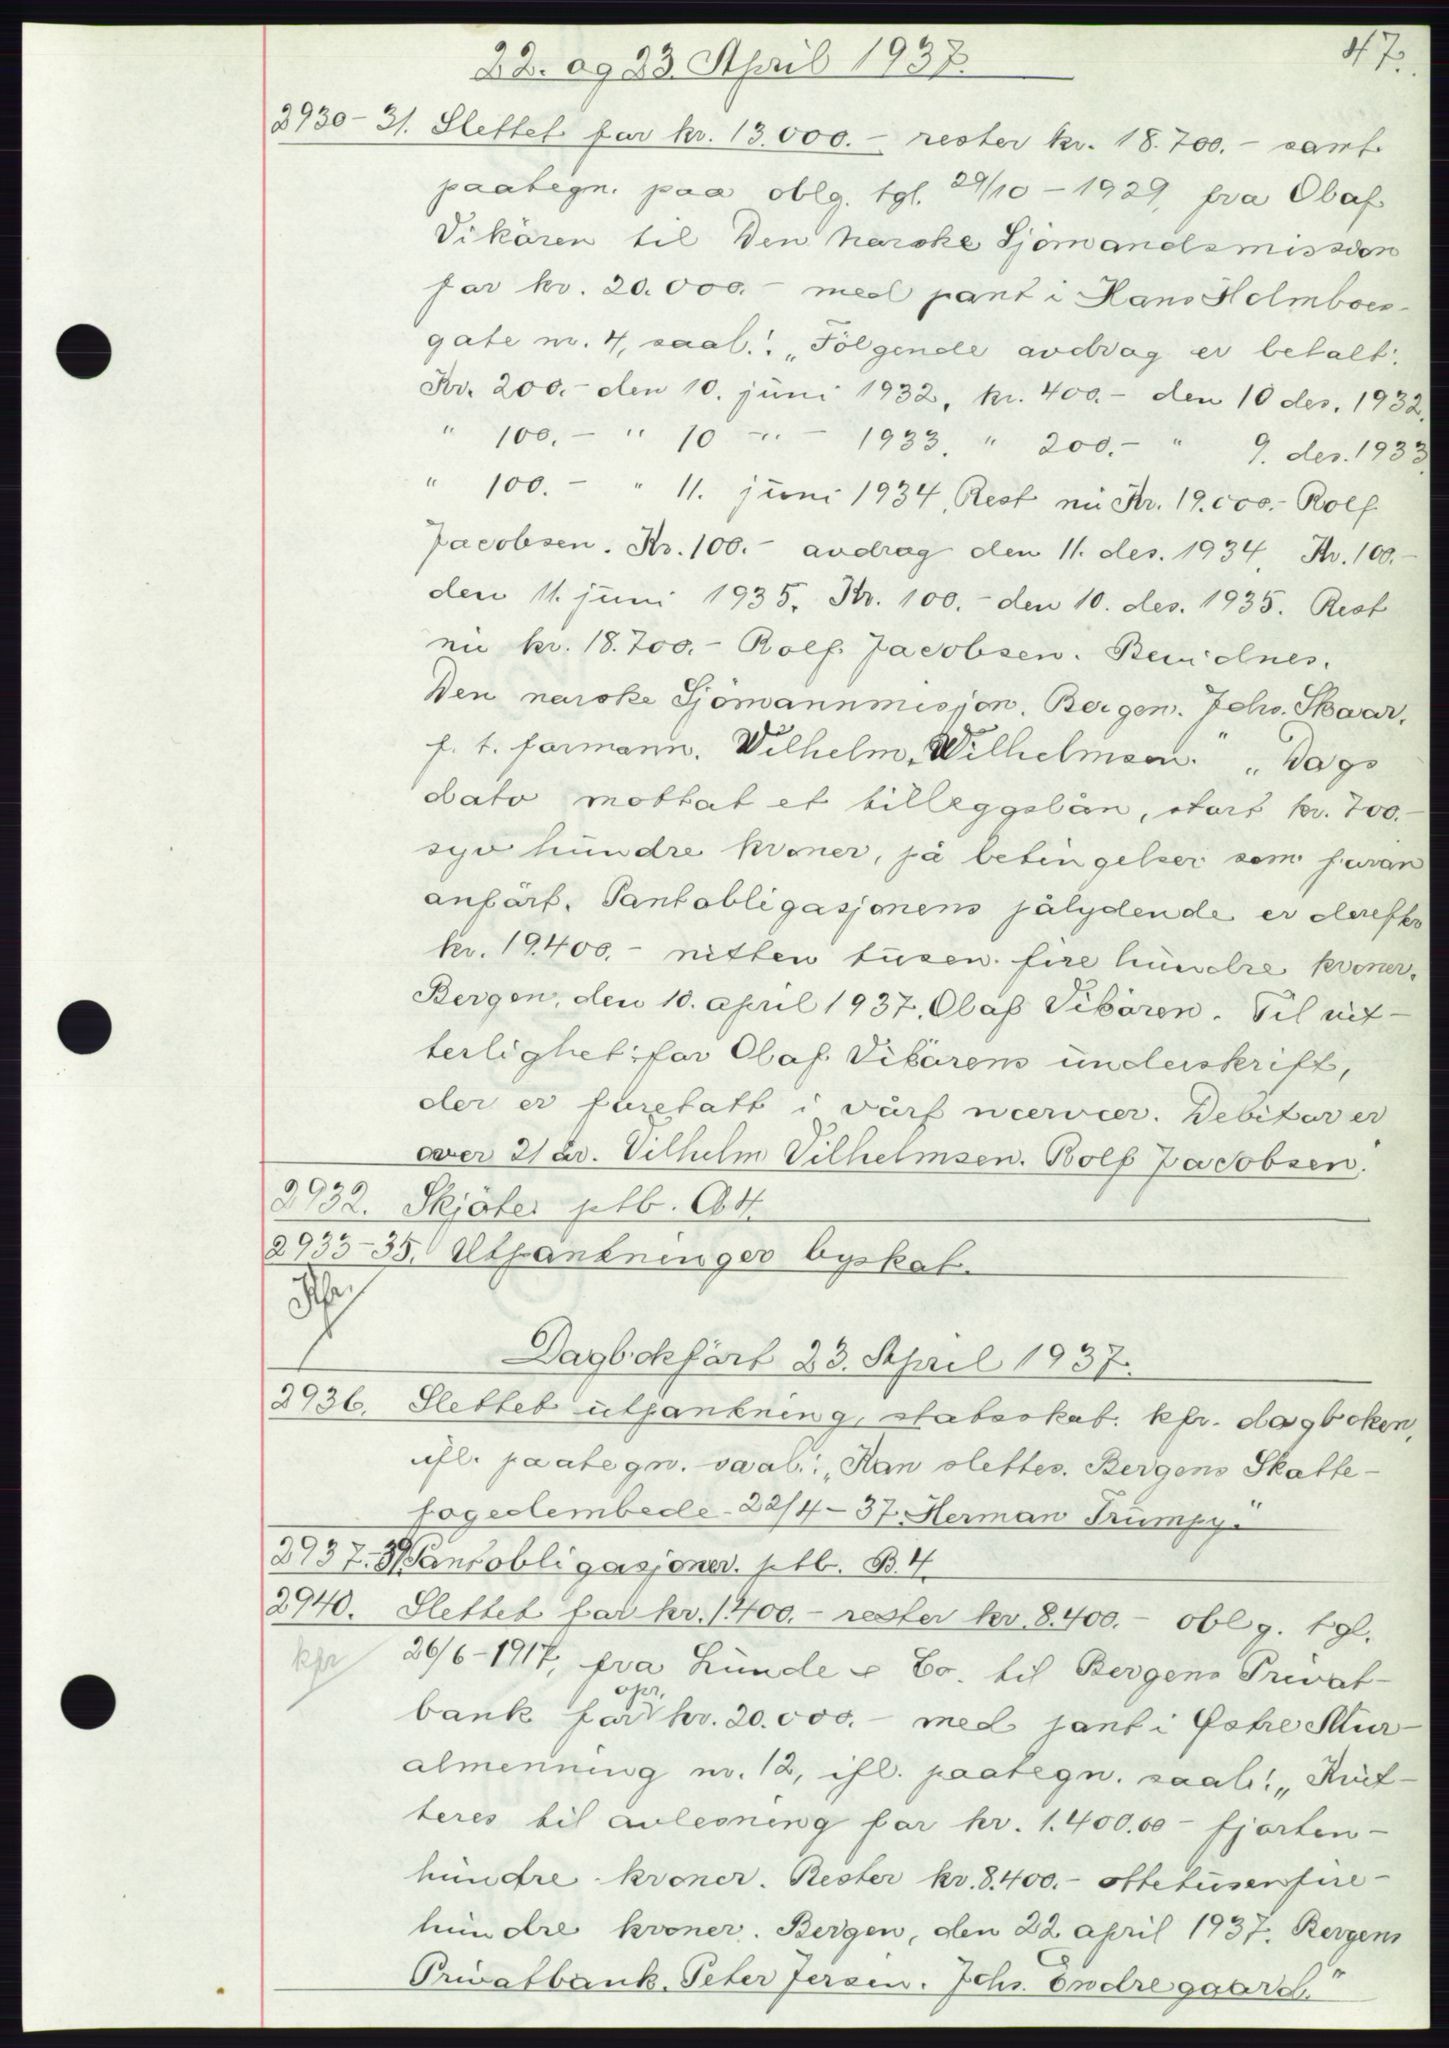 22. og 23. April 1937.
47.
2930-31. Slettet før kr. 13.000.- rester kr. 18.700.- samt
paategn. paa oblg. tgl. 29/10 - 1929, fra Olaf
Vikören til Den norske Sjömandsmission
for kr. 20.000.- med pant i Hans Holmboes-
gate nr. 4, saal.: „Fölgende avdrag er betalt:
Kr. 200.- den 10. juni 1932, kr. 400.- den 10 des. 1932,
" 100.- " 10 -"- 1933. " 200.- " 9. des. 1933,
" 100.- " 11. juni 1934, Rest nu Kr. 19.000.- Rolf
Jacobsen. Kr. 100.- avdrag den 11. des. 1934, Kr. 100.-
den 11. juni 1935, Kr. 100.- den 10. des. 1935. Rest
nu kr. 18.700.- Rolf Jacobsen. Bevidnes.
Den norske Sjömannmisjon. Bergen. Johs. Skaar,
f. t. formann. Wilhelm Wilhelmsen." „Dags
dato mottat et tilleggslån, stort kr. 700.-
syv hundre kroner, på betingelser som foran
anfört. Pantobligasjonens pålydende er derefter
kr. 19.400.- nitten tusen fire hundre kroner.
Bergen, den 10. april 1937. Olaf Vikören. Til vit-
terlighet for Olaf Vikörens underskrift,
der er foretatt i vårt nærvær. Debitor er
over 21 år. Vilhelm Vilhelmsen. Rolf Jacobsen."
2932. Skjöter ptb. A 4.
2933-35. Utpantninger byskat.
Dagbokfört 23. April 1937.
2936. Slettet utpantning, statsskat. kfr. dagboken,
ifl. paategn. saal.: „Kan slettes. Bergens Skatte-
fogedembede 22/4 - 37. Herman Trumpy."
2937-39. Pantobligasjoner. ptb. B. 4.
2940. Slettet for kr. 1.400.- rester kr. 8.400.- oblg. tgl.
kfr
26/6 - 1917, fra Lunde & Co. til Bergens Privat-
opr.
bank for kr. 20.000.- med pant i Østre Mur-
almenning nr. 12, ifl. paategn. saal.: „Kvit-
teres til avlesning for kr. 1.400.00 - fjorten-
hundre kroner. Rester kr. 8.400.- ottetusenfire-
hundre kroner. Bergen, den 22 april 1937. Bergens
Privatbank. Peter Jersin. Johs. Endregaard."